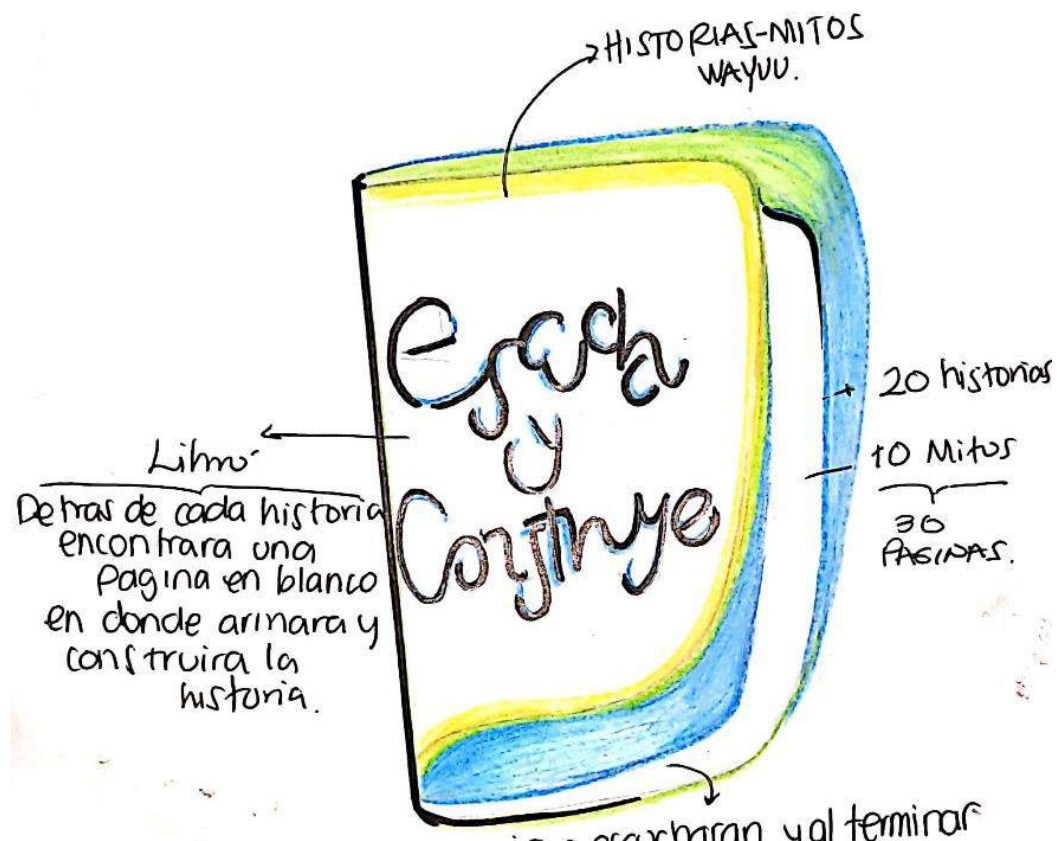 HISTORIAS-MITOS
WAYUU.
Escucha
y
Construye
20 historias
10 Mitos
30
PAGINAS.
Libro
Detras de cada historia
encontrara una
Pagina en blanco
en donde armara y
construira la
historia.
escucharan y al terminar